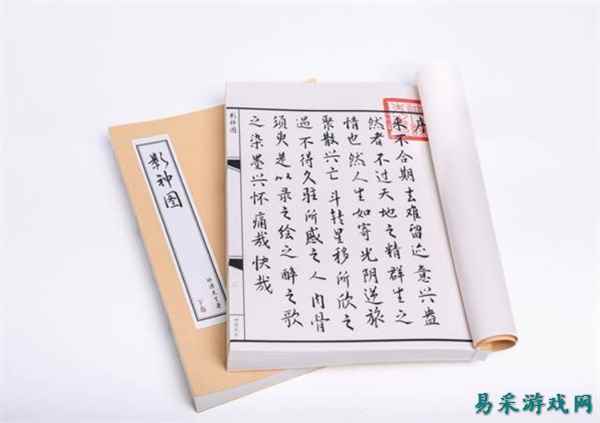 序
来不合期去难留迹意兴盎
然者不过天地之精群生之
情也然人生如寄光阴逆旅
聚散兴亡斗转星移所欣之
遇不待久驻所感之人肉骨
须臾是以录之绘之醉之歌
之染墨兴怀痛哉快哉
影神图
影神图
下卷
易采游戏网